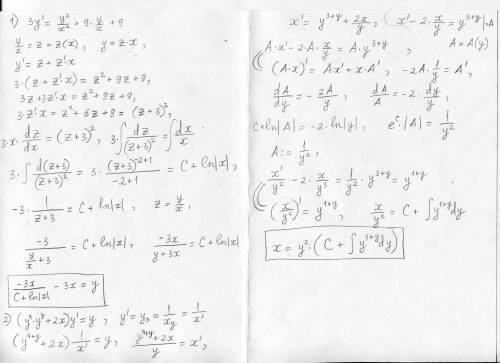 1) 3y' = y²/x² + 9·y/x + 9
y/x = z = z(x), y = z·x,
y' = z + z'x
3·(z + z'x) = z² + 9z + 9,
3z + 3z'x = z² + 9z + 9,
3·z'x = z² + 6z + 9 = (z+3)²,
3·x·dz/dx = (z+3)², 3·∫dz/(z+3)² = ∫dx/x
3·∫d(z+3)/(z+3)² = 3·(z+3)^(-2+1)/(-2+1) = C + ln|x|,
-3·1/(z+3) = C + ln|x|, z = y/x,
-3/(y/x + 3) = C + ln|x|, -3x/(y+3x) = C + ln|x|
-3x/(C + ln|x|) - 3x = y
2) (y⁴·y^y + 2x)y' = y, y' = y_x = 1/x_y = 1/x'
(y^(4+y) + 2x)·1/x' = y, (y^(4+y) + 2x)/y = x',
x' = y^(3+y) + 2x/y, x' - 2·x/y = y^(3+y) |·A
A·x' - 2A·x/y = A·y^(3+y), A = A(y)
(A·x)' = Ax' + x·A', -2A·1/y = A',
dA/dy = -2A/y, dA/A = -2·dy/y,
C + ln|A| = -2·ln|y|, e^c·|A| = 1/y²
A := 1/y²,
x'/y² - 2·x/y³ = 1/y²·y^(3+y) = y^(1+y)
(x/y²)' = y^(1+y), x/y² = C + ∫y^(1+y)dy
x = y²·(C + ∫y^(1+y)dy)